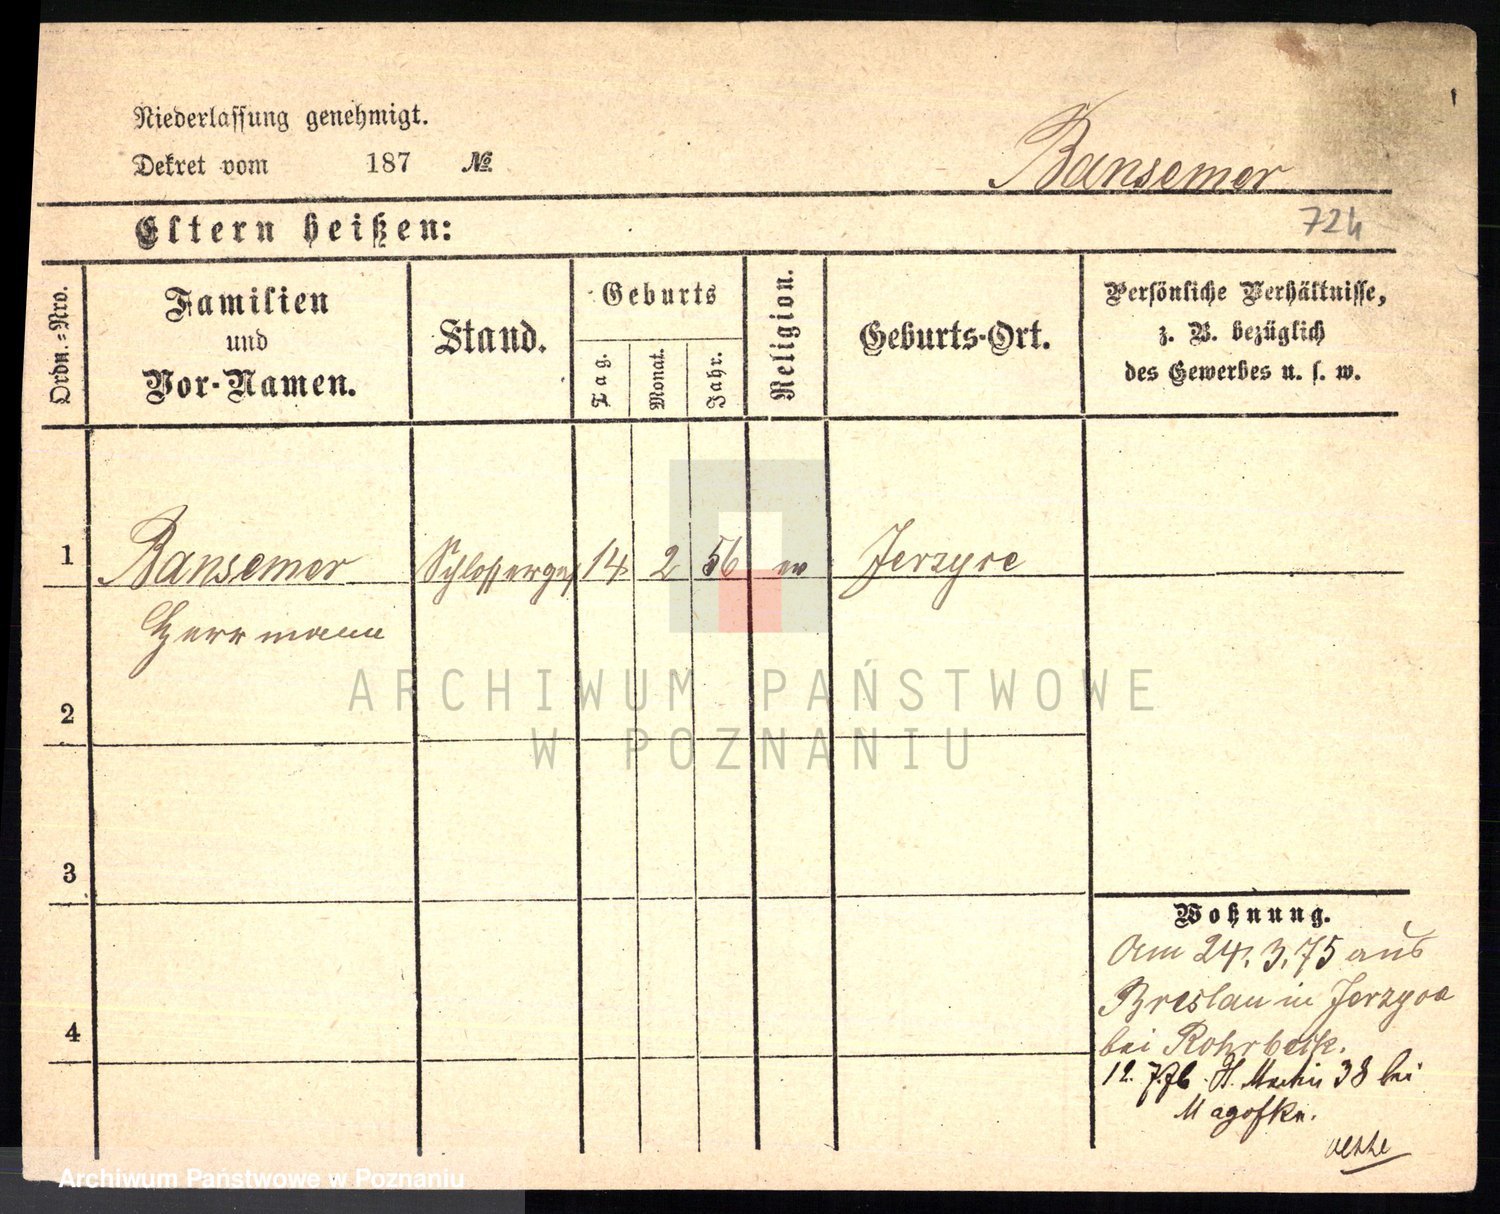 Niederlassung genehmigt.
Dekret vom 187 №
Bansemer
Eltern heißen:
724
Ordn.=Nro.
Familien
und
Vor-Namen.
Stand.
Geburts
Tag.
Monat.
Jahr.
Religion.
Geburts-Ort.
Persönliche Verhältnisse,
z. B. bezüglich
des Gewerbes u. s. w.
1 Bansemer Schlosserges 14 2 56 ev Jerzyce
Herrmann
ARCHIWUM PAŃSTWOWE
W POZNANIU
2
3
Wohnung.
Am 24.3.75 aus
Breslau in Jerzyce
bei Rohrbeck.
4
12. 7.76 St. Martin 38 bei
Archiwum Państwowe w Poznaniu